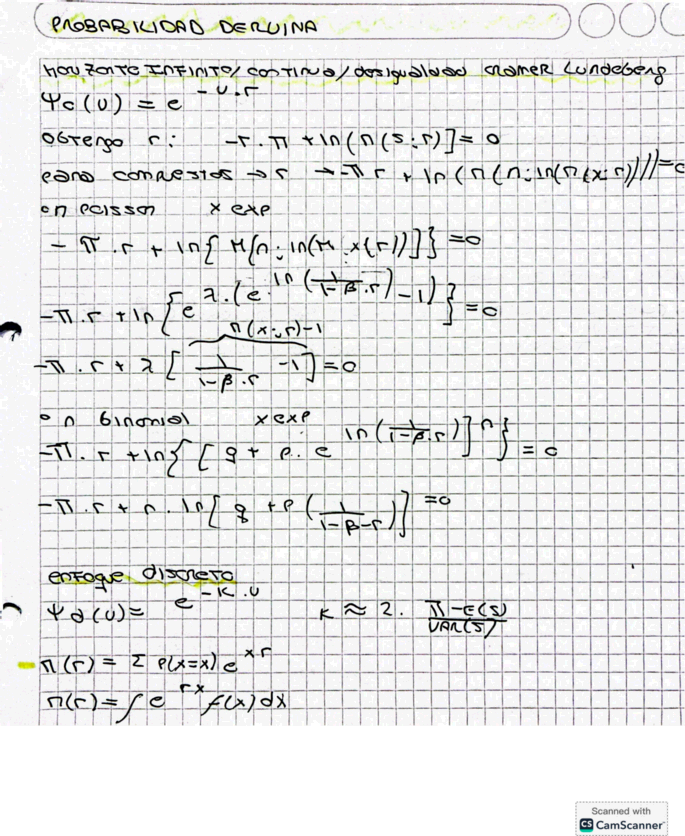 PROBABILIDAD DE RUINA
Horizonte INFINITO/ continuo/ desigualdad cramer Lundeberg
Ψc(u) = e^{-u.r}
Obtengo r: -r.π + ln(M(S;r)] = 0
para compuestos → r → -π r + ln(M(n;ln(M(x;r))))=0
• n poisson x exp
- π.r + ln{ M[n; ln(M x(r))]} =0
-π.r + ln{ e^{λ.(e^{ln(1/(1-β.r))} -1)} } =0
M(x;r)-1
-π.r + λ [ 1/(1-β.r) -1 ] =0
• n binomial x exp
-π.r + ln{ [ q + p. e^{ln(1/(1-β.r))} ]^n } = 0
-π.r + n.ln[ q + p ( 1/(1-β-r) ) ] =0
enfoque discreto
Ψd(u)= e^{-K.u} K ≈ 2. (π-E(S))/VAR(S)
M(r) = Σ P(x=x) e^{xr}
M(r) = ∫ e^{rx} f(x) dx
Scanned with
CS CamScanner